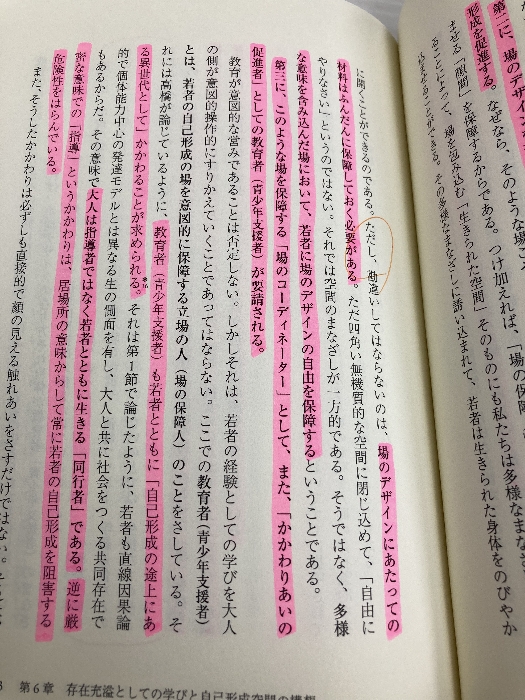 第二に、このような場
形成を促進する。なぜなら、そのような場
ませる「隙間」を保障するからである。つけ加えれば、「場の保障
ることによって、場を包み込む「生きられた空間」そのものにも私たちは多様なまな
その多様なまなざしに誘い込まれて、若者は生きられた身体をのびやか
に開くことができるのである。ただし、勘違いしてはならないのは、場のデザインにあたっての
材料はふんだんに保障しておく必要がある。ただ四角い無機質的な空間に閉じ込めて、「自由に
やりなさい」というのではない。それでは空間のまなざしが一方的である。そうではなく、多様
な意味を含み込んだ場において、若者に場のデザインの自由を保障するということである。
第三に、このような場を保障する「場のコーディネーター」として、また、「かかわりあいの
促進者」としての教育者(青少年支援者)が要請される。
教育が意図的な営みであることは否定しない。しかしそれは、若者の経験としての学びを大人
の側が意図的操作的にすりかえていくことであってはならない。ここでの教育者(青少年支援者)
とは、若者の自己形成の場を意図的に保障する立場の人(場の保障人)のことをさしている。そ
れには高橋が論じているように、教育者(青少年支援者)も若者とともに「自己形成の途上にあ
る異世代として」かかわることが求められる。*16 それは第1節で論じたように、若者も直線因果論
的で個体能力中心の発達モデルとは異なる生の側面を有し、大人と共に社会をつくる共同存在で
もあるからだ。その意味で大人は指導者ではなく若者とともに生きる「同行者」である。逆に厳
密な意味での「指導」というかかわりは、居場所の意味からして常に若者の自己形成を阻害する
危険性をはらんでいる。
また、そうしたかかわりは必ずしも直接的で顔の見える触れあいをさすだけではない。
第6章 存在充溢としての学びと自己形成空間の構想